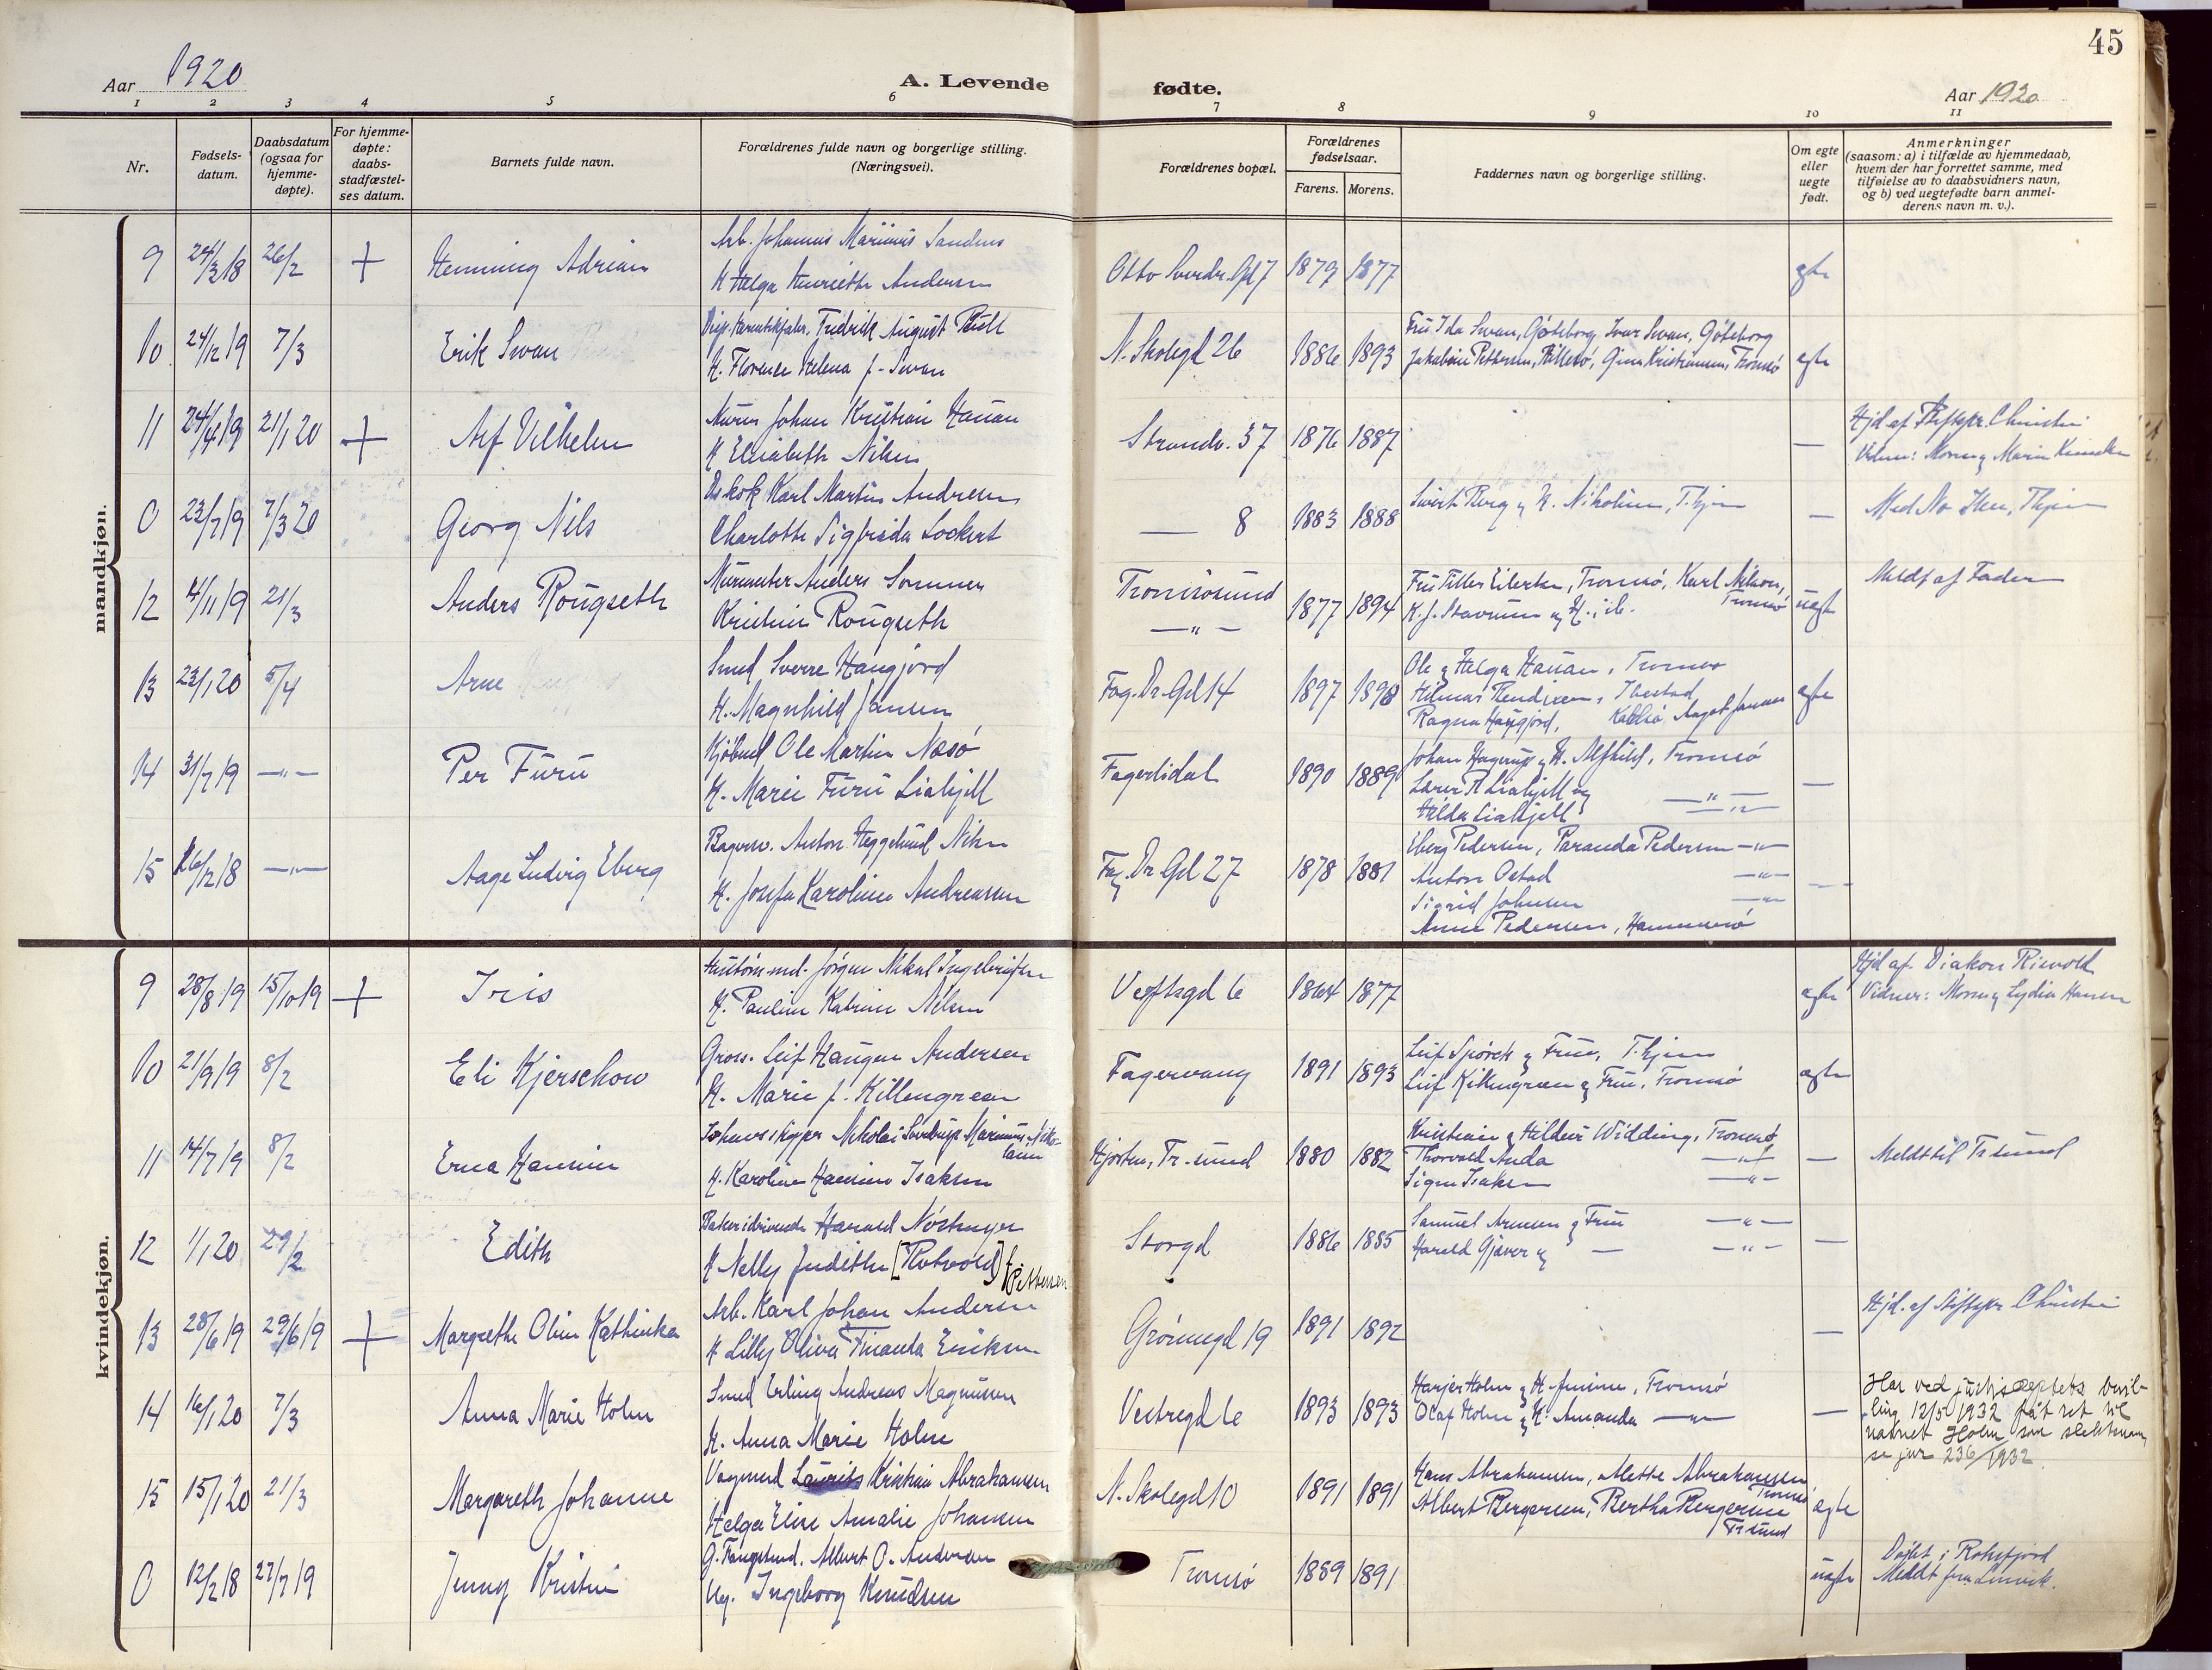 45
Aar 1920
A. Levende
fødte.
Aar 1920
1 2 3 4 5 6 7 8 9 10 11
Nr.
Fødsels-
datum.
Daabsdatum
(ogsaa for
hjemme-
døpte).
For hjemme-
døpte:
daabs-
stadfæstel-
ses datum.
Barnets fulde navn.
Forældrenes fulde navn og borgerlige stilling.
(Næringsvei).
Forældrenes bopæl.
Forældrenes
fødselsaar.
Farens. Morens.
Faddernes navn og borgerlige stilling.
Om egte
eller
uegte
født.
Anmerkninger
(saasom: a) i tilfælde av hjemmedaab,
hvem der har forrettet samme, med
tilføielse av to daabsvidners navn,
og b) ved uegtefødte barn anmel-
derens navn m. v.).
mandkjøn.
9 24/3 18 26/2 + Henning Adrian
Arb. Johannes Marinius
H Helga Henriette Andersen
Otto Sverdr. Gd 7 1879 1877 egte
10 24/12 19 7/3 Erik Swan
Fredrik August Bull
H. Florence Helena f. Swan
N. Skolegd 26 1886 1893
Fru Ida Swan, Göteborg, Ivar Swan, Göteborg
Jakobine Pettersen, Gina Kristiansen, Tromsø
egte
11 24/4 19 21/1 20 + Alf Vilhelm
Murer Johan Kristian Hauan
H Elisabeth Nilsen
Strandv. 37 1876 1887 —
Hjd af Stiftspr. Christie
Vidner: Moren og Marie
0 23/7 19 7/3 20 Georg Nils
Karl Martin Andresen
Charlotte Sigfrida Lockert
— 8 1883 1888
Sivert Berg og H. Nikoline, T.hjem
—
12 4/11 19 21/3 Anders Rougseth
Murmester Anders Sommer
Kristine Rougseth
Tromsøsund
— " —
1877 1894
Fru Eilertsen, Tromsø, Karl Nilsen,
Tromsø
K. J. Stavrum og H. ib.
uegte
Meldt af Fader
13 23/1 20 5/4 Arne
Smed Sverre Haugjord
H. Magnhild Jansen
Fag. Dr. Gd 14 1897 1898
Ole og Helga Hauan, Tromsø
Hilmar Bendixen, Ibestad
Ragna Haugjord, Aagot Jansen
egte
14 31/7 19 — " — Per Furu
Kjøbmd Ole Martin Næsø
H. Marie Furu Liakjell
Fagerlidal 1890 1889
Johan Hagerup og H. Alfhild, Tromsø
Liakjell og — " —
Hilda Liakjell — " —
—
15 26/12 18 — " — Aage Ludvig Eberg
Anton Heggelund Nilsen
H. Josefa Karoline Andreassen
Fag. Dr. Gd 27 1878 1881
Eberg Pedersen, Paranda Pedersen — " —
Anton Ostad — " —
Sigrid Johnsen — " —
Anne Pedersen, Hammerø
—
kvindekjøn.
9 28/8 19 15/10 19 + Iris
Jørgen Mikal Ingebrigtsen
H. Pauline Katrine Nilsen
Verftsgd 6 1864 1877 egte
Hjd af Diakon Risvold
Vidner: Moren og Lydia Hansen
10 21/9 19 8/2 Eli Kjerschow
Gross. Leif Haugen Andersen
H. Marie f. Killengreen
Fagervang 1891 1893
Leif Spørck og Frue, T.hjem
Leif Killengreen og Frue, Tromsø
egte
11 14/7 19 8/2 Erna Hansine
Nikolai Sverdrup Marinius
H. Karoline Hansine Isaksen
Hjorten, Tr.sund 1880 1882
Kristian og Hildur Widding, Tromsø
Thorvald Anda — " —
Signe Isaksen — " —
—
Meldt til Tr.sund
12 1/1 20 29/2 Edith
Harald
H Nelly Judithe [Rotvold] f. Pettersen
Storgd 1886 1885
Samuel Arnesen og Frue — " —
Harald Gjæver og — — " —
—
13 28/6 19 29/6 19 + Margrethe Oline Kathinka
Arb. Karl Johan Andersen
H Lilly Oliva Finanda Eriksen
Grønnegd 19 1891 1892 —
Hjd. af Stiftspr Christie
14 16/1 20 7/3 Anna Marie Holm
Smed Erling Andreas Magnussen
H. Anna Marie Holm
Vestregd 6 1893 1893
Holm og H. Tromsø
Olaf Holm og H. Amanda — " —
—
Har ved justisdeptets bevil-
ling 12/5 1932 fåt ret til
navnet Holm som slektsnavn,
se jnr 236/1932.
15 15/1 20 21/3 Margareth Johanne
Vognmd Laurits Kristian Abrahamsen
Helga Elise Amalie Johansen
N. Skolegd 10 1891 1891
Hans Abrahamsen, Mette Abrahamsen
Tromsø
Albert Bergersen, Bertha Bergersen
Tr.sund
egte
0 12/2 18 27/7 19 Jenny Kristine
Albert O. Andersen
Ug. Ingeborg Knudsen
Tromsø 1889 1891 uegte
Døbt i
Meldt fra Lenvik.